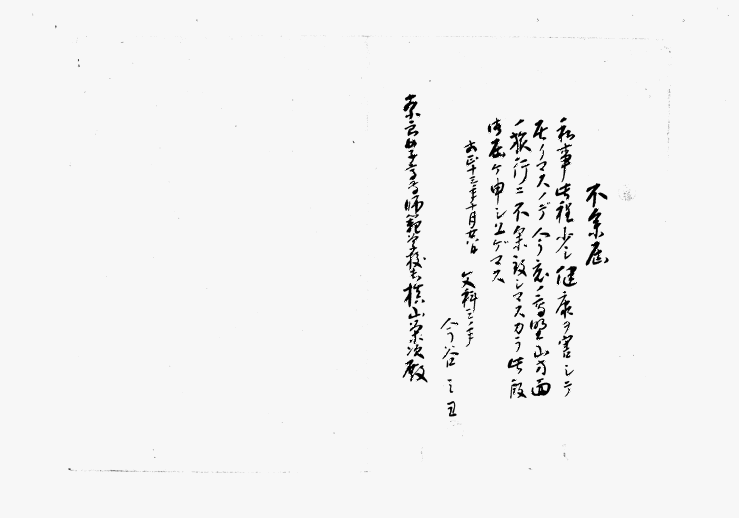 不参届
私事此程少シ健康ヲ害シテ
居リマスノデ今度ノ高野山方面
ノ旅行ニ不参致シマスカラ此段
御届ケ申シ上ゲマス
大正十三年十月廿八日 文科三年
今谷ミヨ
奈良女子高等師範学校長槙山栄次殿